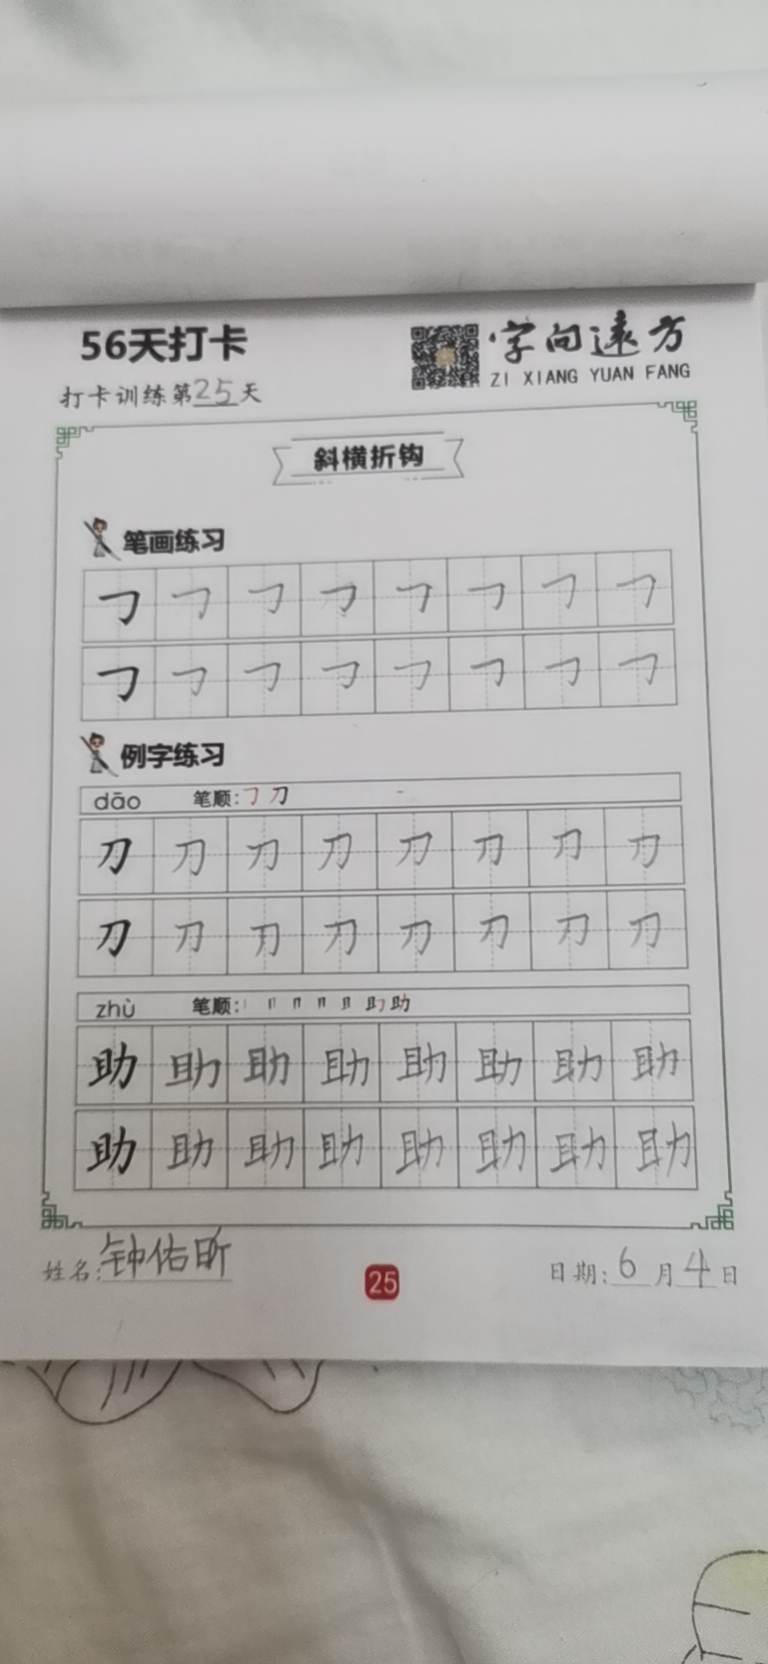 56天打卡
字向远方
ZI XIANG YUAN FANG
打卡训练第25天
斜横折钩
笔画练习
㇆ ㇆ ㇆ ㇆ ㇆ ㇆ ㇆ ㇆
㇆ ㇆ ㇆ ㇆ ㇆ ㇆ ㇆ ㇆
例字练习
dāo 笔顺:㇆ 刀
刀 刀 刀 刀 刀 刀 刀 刀
刀 刀 刀 刀 刀 刀 刀 刀
zhù 笔顺: 助
助 助 助 助 助 助 助 助
助 助 助 助 助 助 助 助
姓名:钟佑昕
25
日期:6月4日